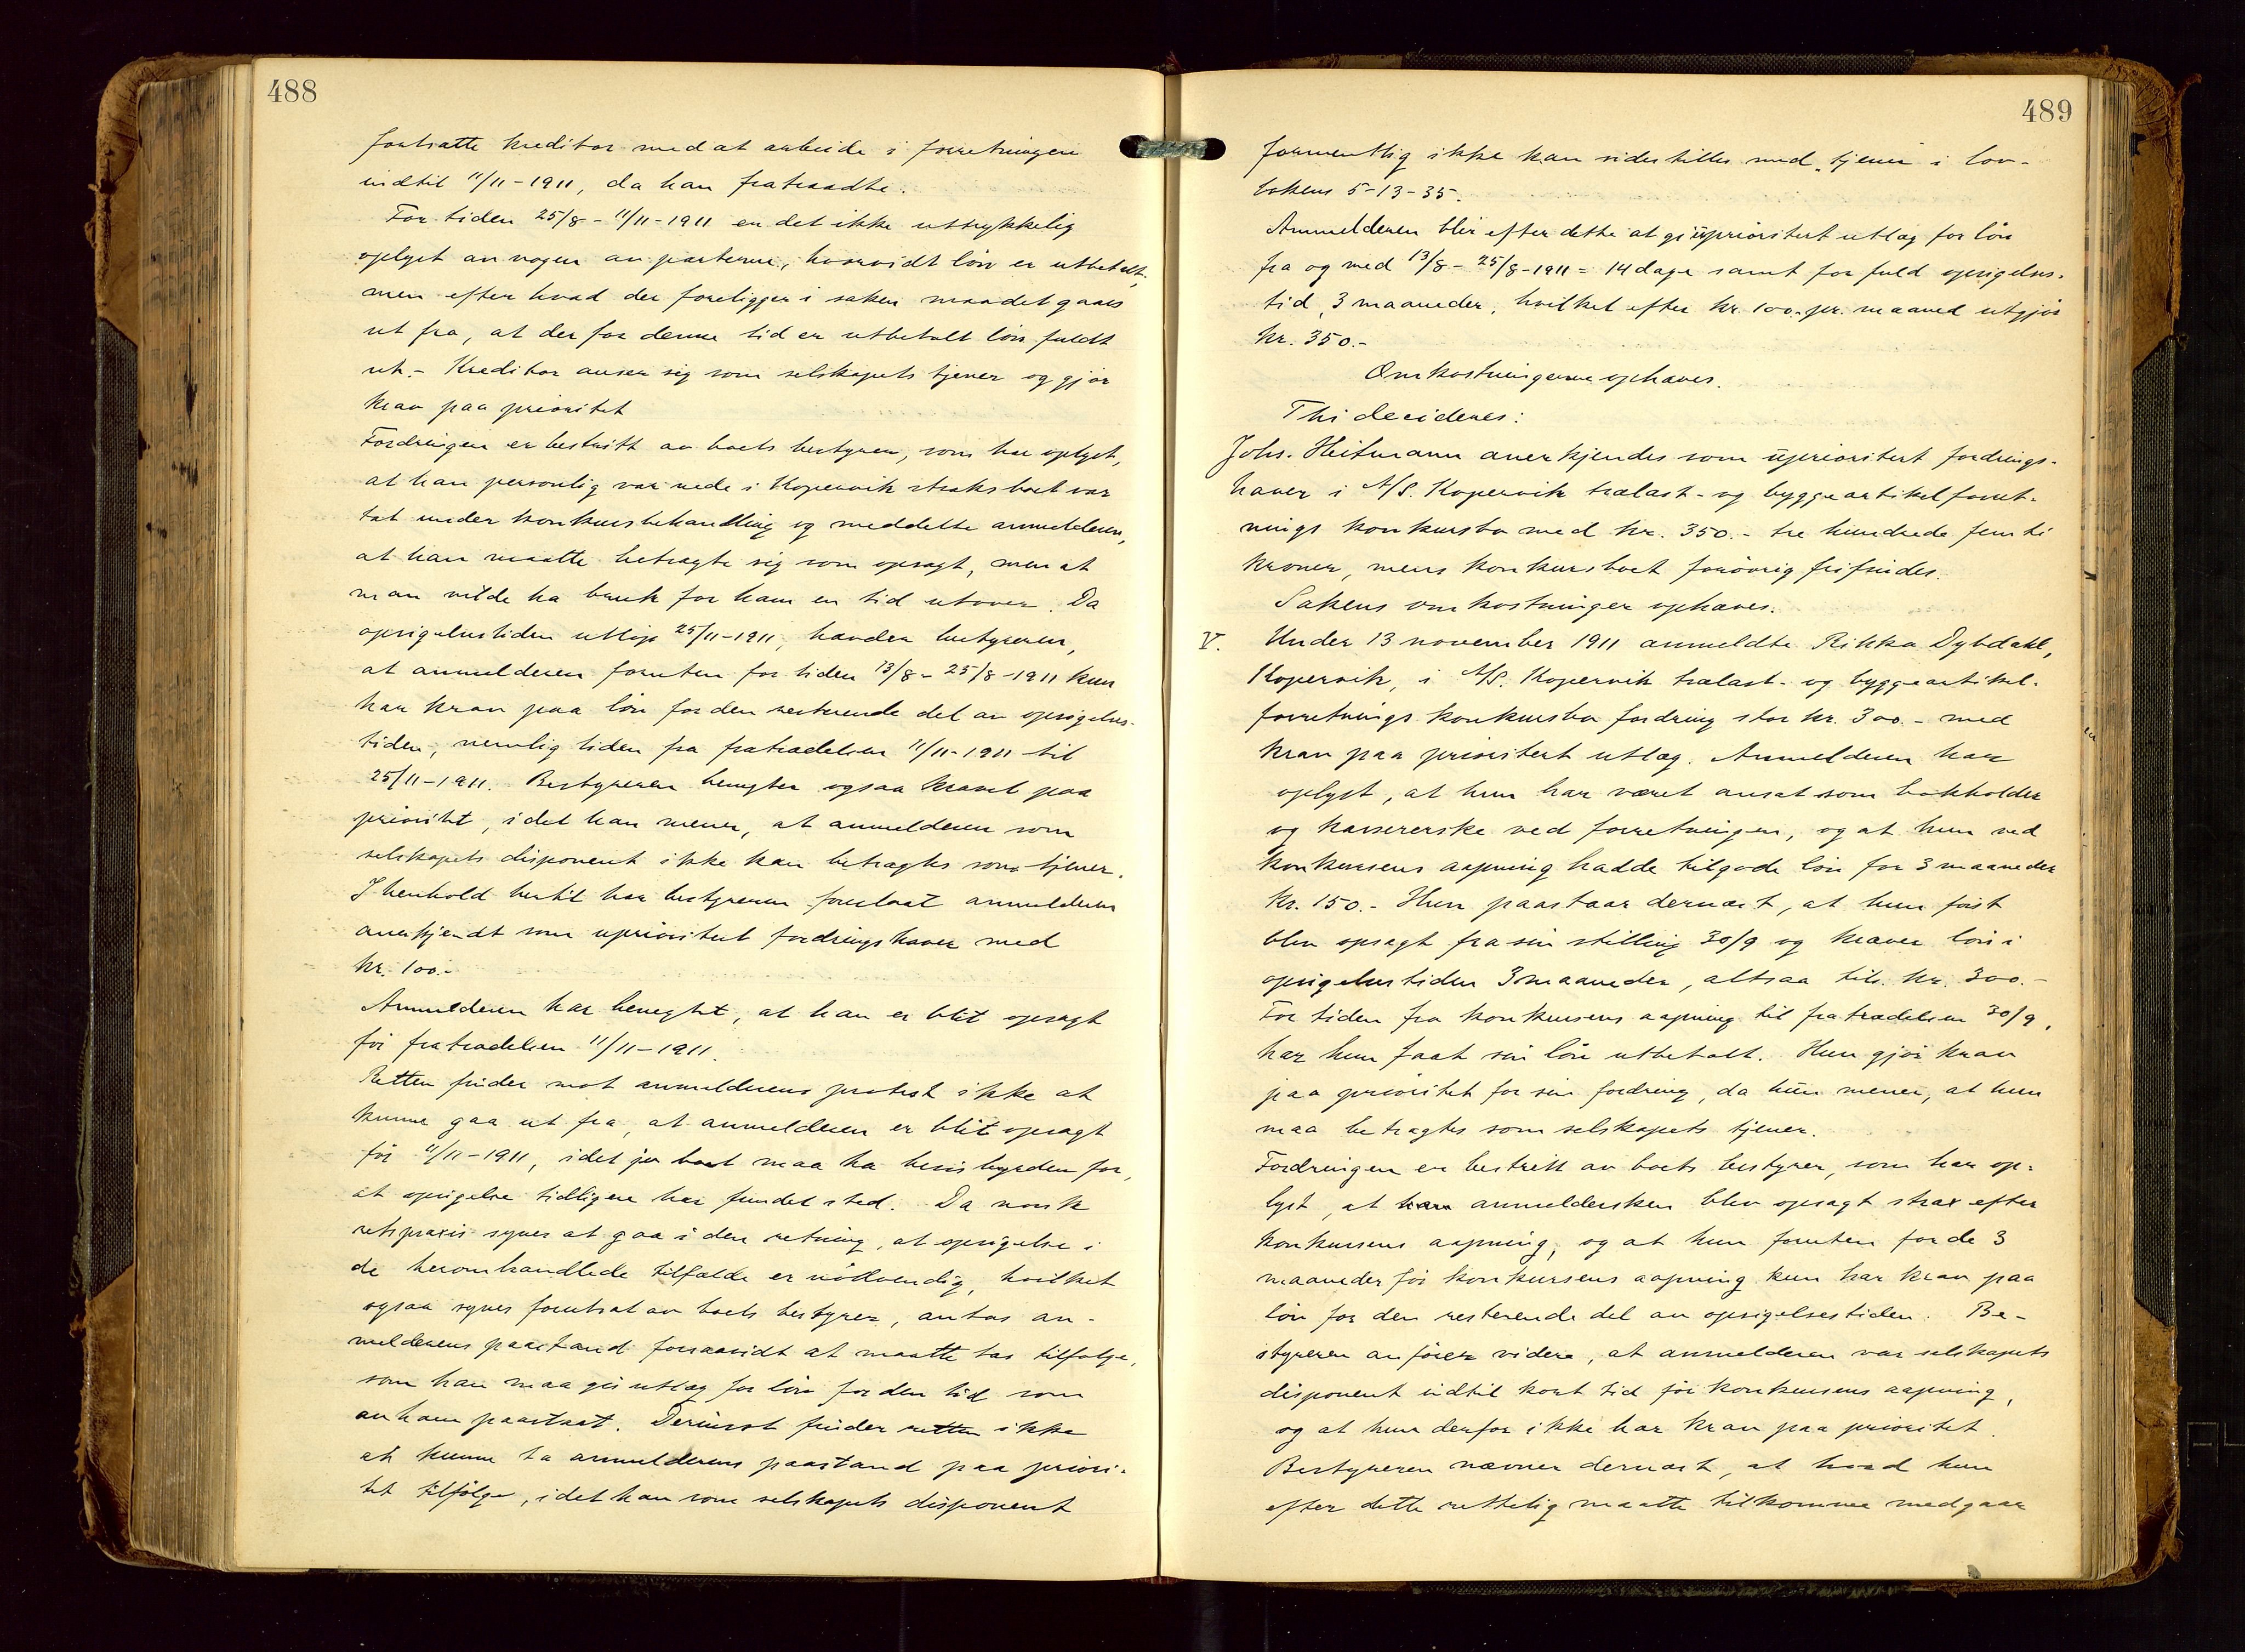 488
fortsatte kreditor med at arbeide i forretningen
indtil 11/11-1911, da han fratraadte.
For tiden 25/8 - 11/11-1911 er det ikke uttrykkelig
oplyst av nogen av parterne, hvorvidt løn er utbetalt,
men efter hvad der foreligger i saken maa det gaaes
ut fra, at der for denne tid er utbetalt løn fuldt
ut. - Kreditor anser sig som selskapets tjener og gjør
krav paa prioritet
Fordringen er bestritt av boets bestyrer, som har oplyst,
at han personlig var nede i Kopervik straks boet var
tat under konkursbehandling og meddelte anmelderen,
at han maatte betragte sig som opsagt, men at
man vilde ha bruk for ham en tid utover. Da
opsigelsestiden utløp 25/11-1911, hævder bestyreren,
at anmelderen foruten for tiden 13/8 - 25/8-1911 kun
har krav paa løn for den resterende del av opsigelses-
tiden, nemlig tiden fra fratrædelsen 11/11-1911 til
25/11-1911. Bestyreren benegter ogsaa kravet paa
prioritet, idet han mener, at anmelderen som
selskapets disponent ikke kan betragtes som tjener.
I henhold hertil har bestyreren foreslaat anmelderen
anerkjendt som uprioritert fordringshaver med
kr. 100.-
Anmelderen har benegtet, at han er blit opsagt
før fratrædelsen 11/11-1911.
Retten finder mot anmelderens protest ikke at
kunne gaa ut fra, at anmelderen er blit opsagt
før 11/11-1911, idet jo boet maa ha bevisbyrden for,
at opsigelse tidligere har fundet sted. Da norsk
retspraxis synes at gaa i den retning, at opsigelse i
de heromhandlede tilfælde er nødvendig, hvilket
ogsaa synes forutsat av boets bestyrer, antas an-
melderens paastand forsaavidt at maatte tas tilfølge,
som han maa gis utlæg for løn for den tid som
av ham paastaat. Derimot finder retten ikke
at kunne ta anmelderens paastand paa priori-
tet tilfølge, idet han som selskapets disponent
489
formentlig ikke kan sidestilles med „tjener i lov-
bokens 5-13-35.
Anmelderen blir efter dette at gi uprioritert utlæg for løn
fra og med 13/8 - 25/8-1911 = 14 dage samt for fuld opsigelses-
tid, 3 maaneder, hvilket efter kr. 100.- pr. maaned utgjør
kr. 350.-
Omkostningerne ophæves.
Thi decideres:
Johs. Heitmann anerkjendes som uprioritert fordrings-
haver i A/S. Kopervik trælast- og byggeartikelforret-
nings konkursbo med kr. 350.- tre hundrede femti
kroner, mens konkursboet forøvrig frifindes.
Sakens omkostninger ophæves.
V. Under 13 november 1911 anmeldte Rikka Dybdahl,
Kopervik, i A/S. Kopervik trælast- og byggeartikel-
forretnings konkursbo fordring stor kr. 300.- med
krav paa prioritert utlæg. Anmelderen har
oplyst, at hun har været ansat som bokholder
og kassererske ved forretningen, og at hun ved
konkursens aapning hadde tilgode løn for 3 maaneder
kr. 150.- Hun paastaar dernæst, at hun først
blev opsagt fra sin stilling 30/9 og kræver løn i
opsigelsestiden 3 maaneder, altsaa tils. kr. 300.-
For tiden fra konkursens aapning til fratrædelsen 30/9,
har hun faat sin løn utbetalt. Hun gjør krav
paa prioritet for sin fordring, da hun mener, at hun
maa betragtes som selskapets tjener.
Fordringen er bestritt av boets bestyrer, som har op-
lyst, at anmeldersken blev opsagt strax efter
konkursens aapning, og at hun foruten for de 3
maaneder før konkursens aapning kun har krav paa
løn for den resterende del av opsigelsestiden. Be-
styreren anfører videre, at anmelderen var selskapets
disponent indtil kort tid før konkursens aapning,
og at hun derfor ikke har krav paa prioritet.
Bestyreren nævner dernæst, at hvad hun
efter dette rettelig maatte tilkomme medgaar